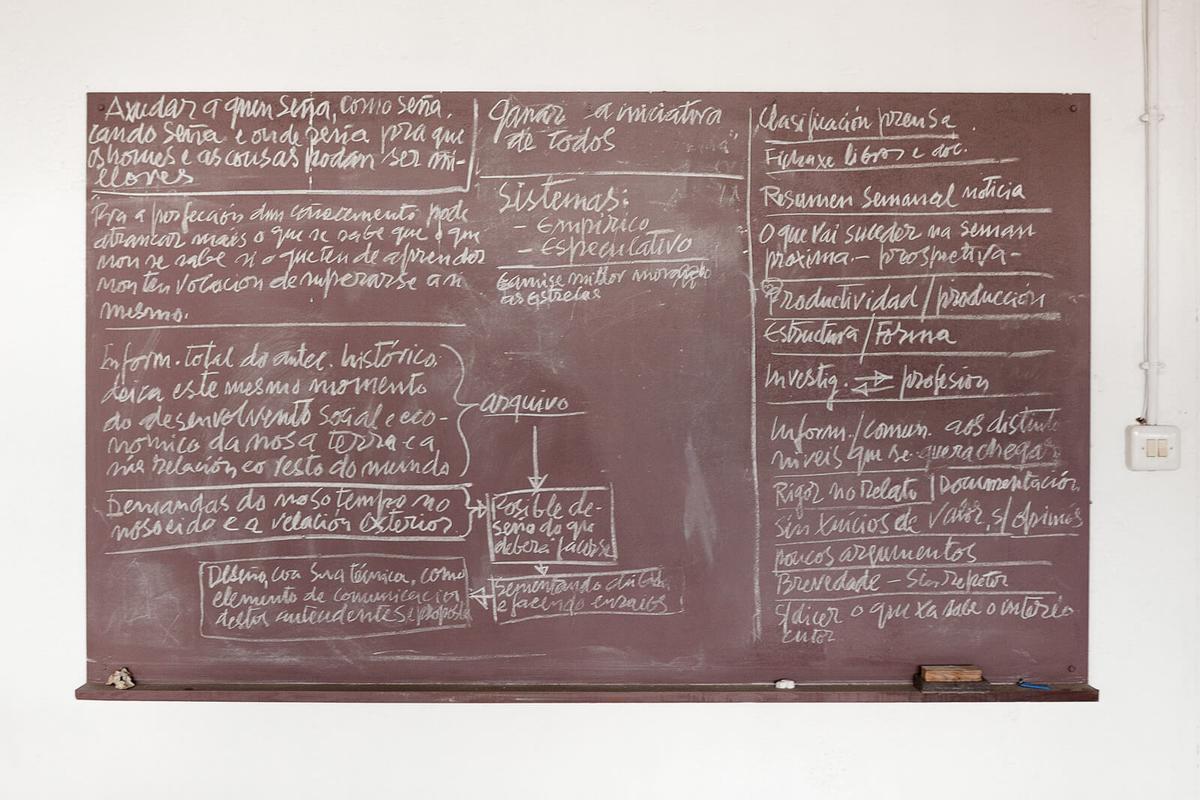 Axudar a quen Seña, como seña,
cando seña e onde seña pra que
os homes e as cousas podan ser mi-
llores
Pra a profección dun coñecemento pode
atrancar mais o que se sabe que o que
non se sabe si o que ten de aprender
non ten vocacion de superarse a si
mesmo.
Inform. total do antec. histórico,
deica este mesmo momento
do desenvolvemento social e eco-
nomico da nosa terra e a
súa relación co resto do mundo
Demandas do noso tempo no
noso eido e a relación exterior
Deseño, coa sua técnica, como
elemento de comunicacion
destos antecedentes e proposta
Ganar a iniciativa
de todos
Sistemas:
- Empírico
- Especulativo
Camiñase millor mirando
ás estrelas
arquivo
Posible de-
seño do que
deberá facerse
Sementando dudas
e facendo ensaios
Clasificación prensa.
Fichaxe libros e doc.
Resumen semanal noticia
O que vai suceder na seman
proxima - prospectiva -
Productividad / producción
Estructura / Forma
Investig. ⇄ profesion
Inform./comun. aos distinto
niveis que se quera chegar
Rigor no relato | Documentación,
sin xuicios de valor, s/ opinions
poucos argumentos
Brevedade - Sin repetir
S/dicer o que xa sabe o interlo
cutor